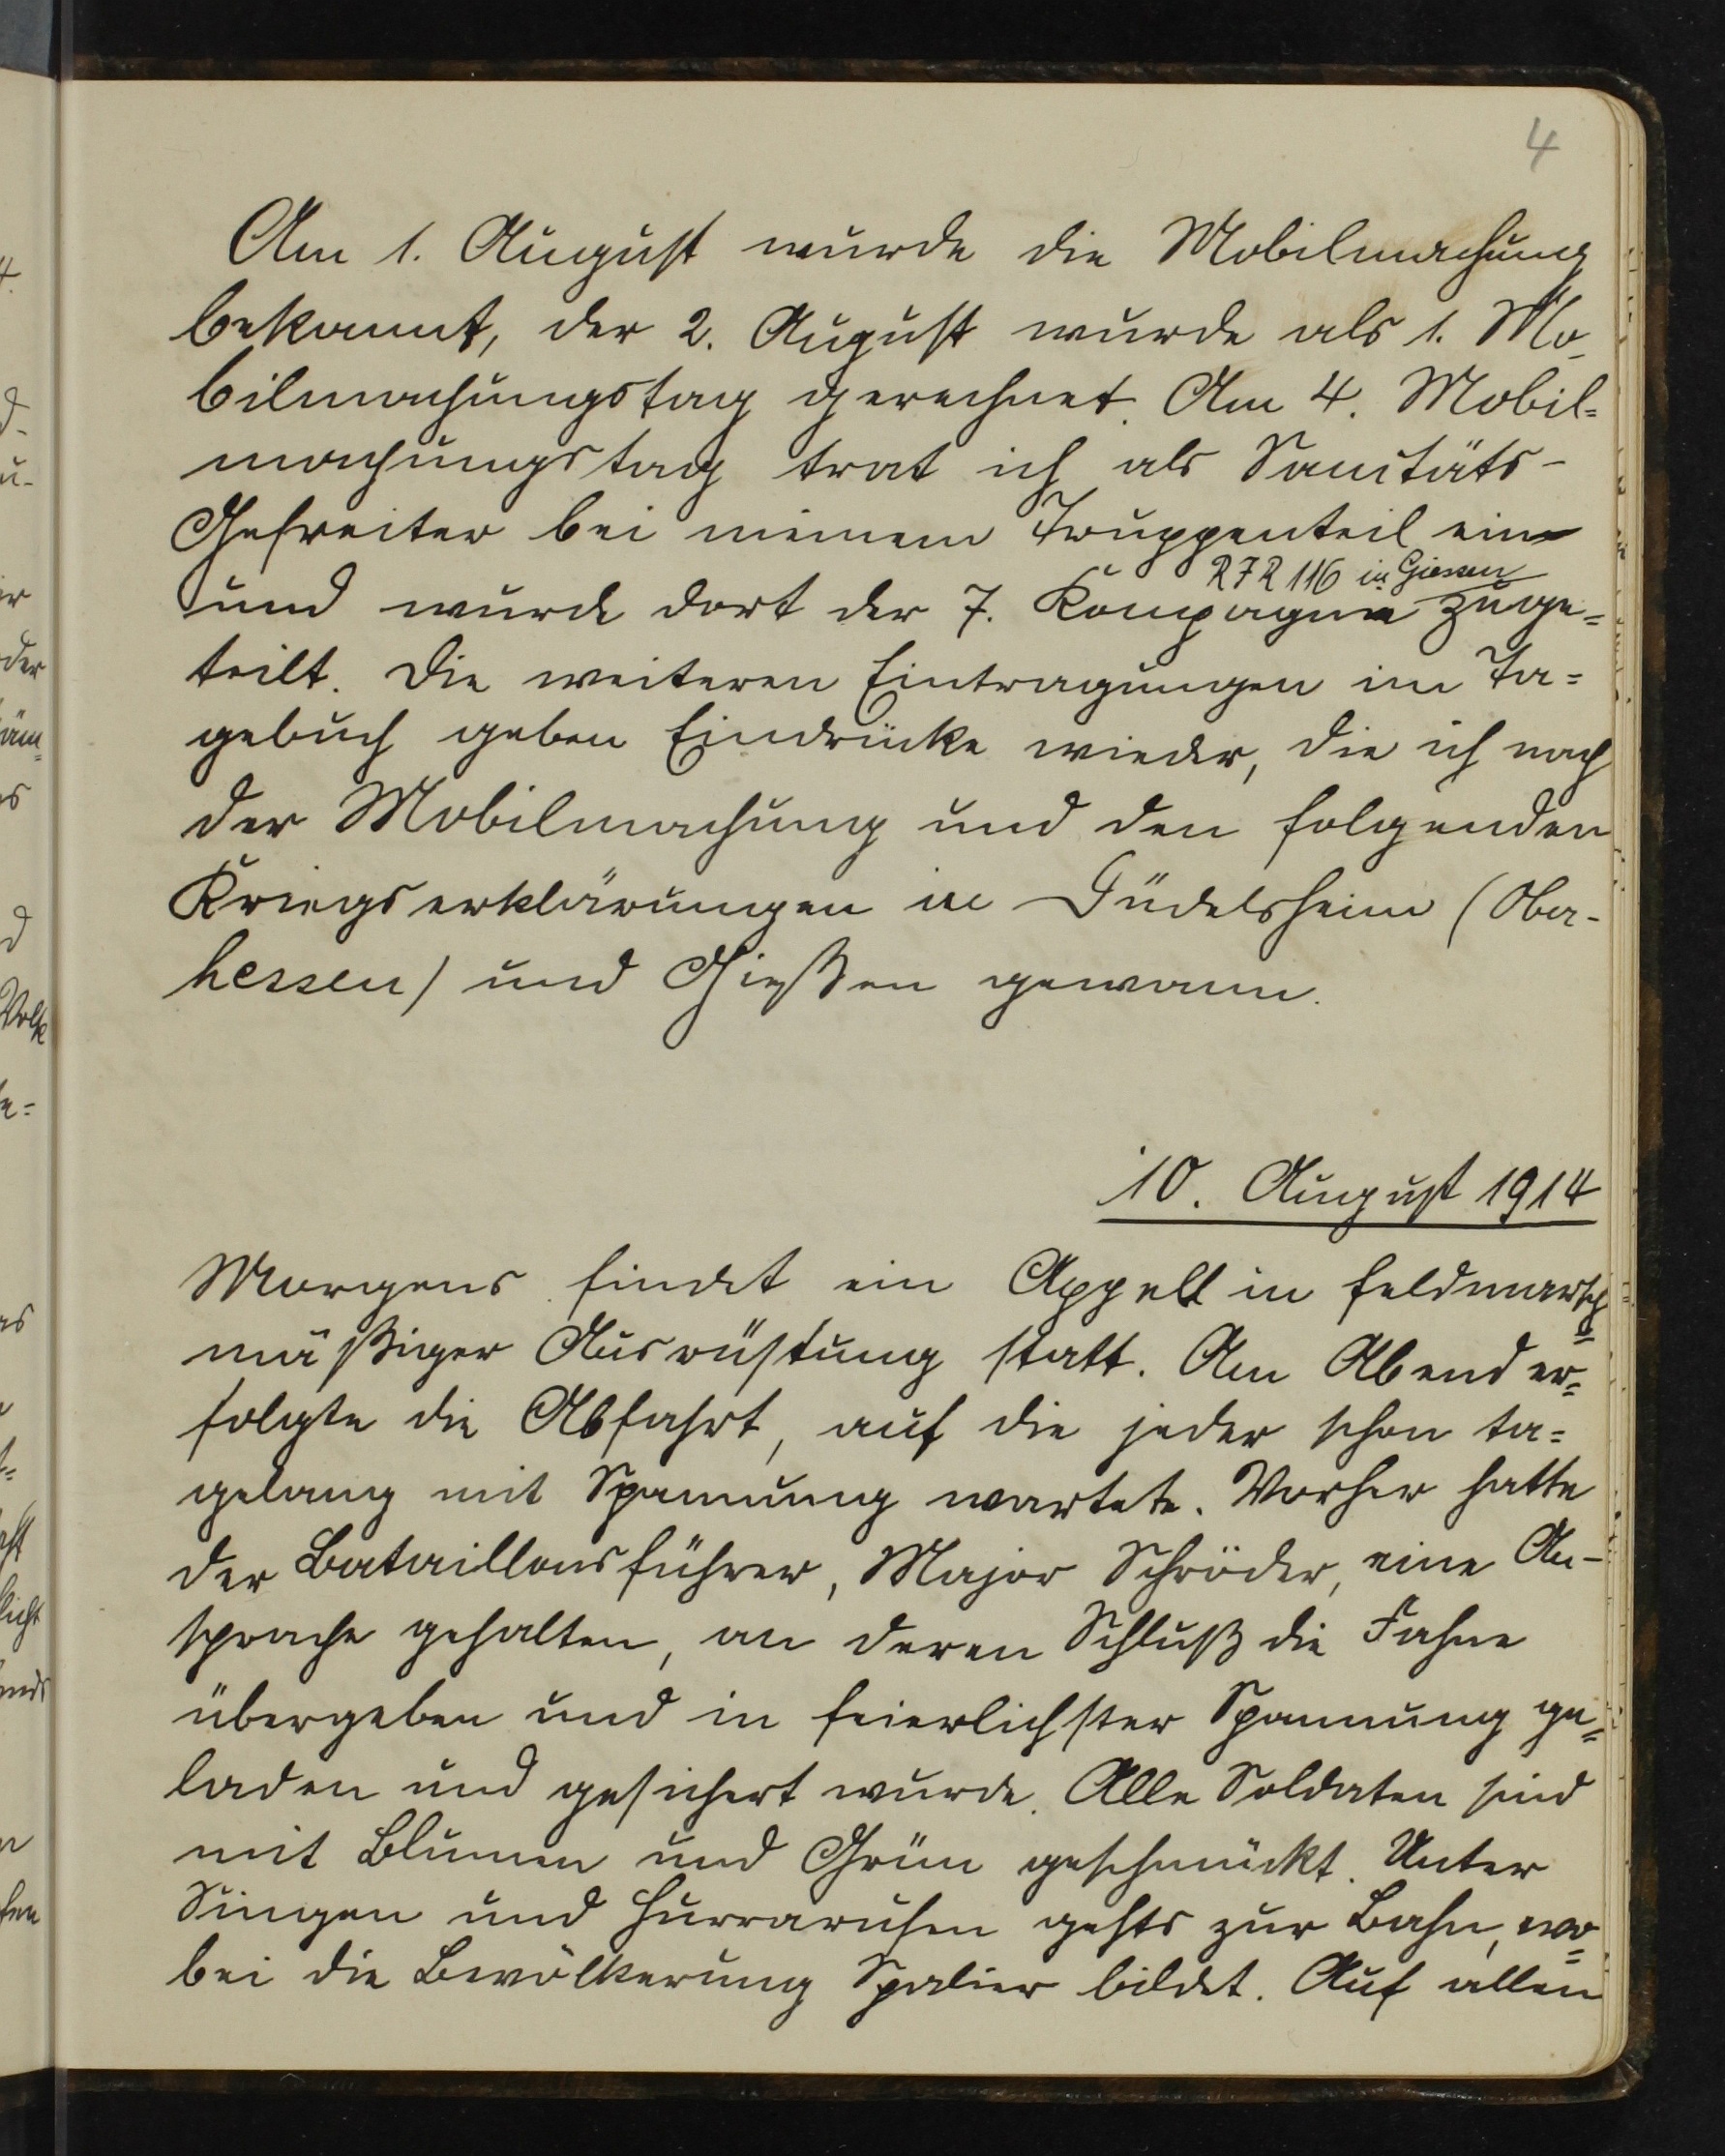 4
Am 1. August wurde die Mobilmachung
bekannt, der 2. August wurde als 1. Mo-
bilmachungstag gerechnet. Am 4. Mobil=
machungstag trat ich als Sanitäts-
Gefreiter bei meinem Truppenteil ein
R I R 116 in Giessen
und wurde dort der 7. Kompagnie zuge=
teilt. Die weiteren Eintragungen im Ta=
gebuch geben Eindrücke wieder, die ich nach
der Mobilmachung und den folgenden
Kriegserklärungen in Düdelsheim (Ober-
hessen) und Gießen gewann.
10. August 1914
Morgens findet ein Appell in feldmarsch=
mäßiger Ausrüstung statt. Am Abend er=
folgte die Abfahrt, auf die jeder schon ta=
gelang mit Spannung wartete. Vorher hatte
der Bataillonsführer, Major Schröder, eine An-
sprache gehalten, an deren Schluß die Fahne
übergeben und in feierlichster Spannung ge=
laden und gesichert wurde. Alle Soldaten sind
mit Blumen und Grün geschmückt. Unter
Singen und Hurrarufen gehts zur Bahn, wo=
bei die Bevölkerung Spalier bildet. Auf allen